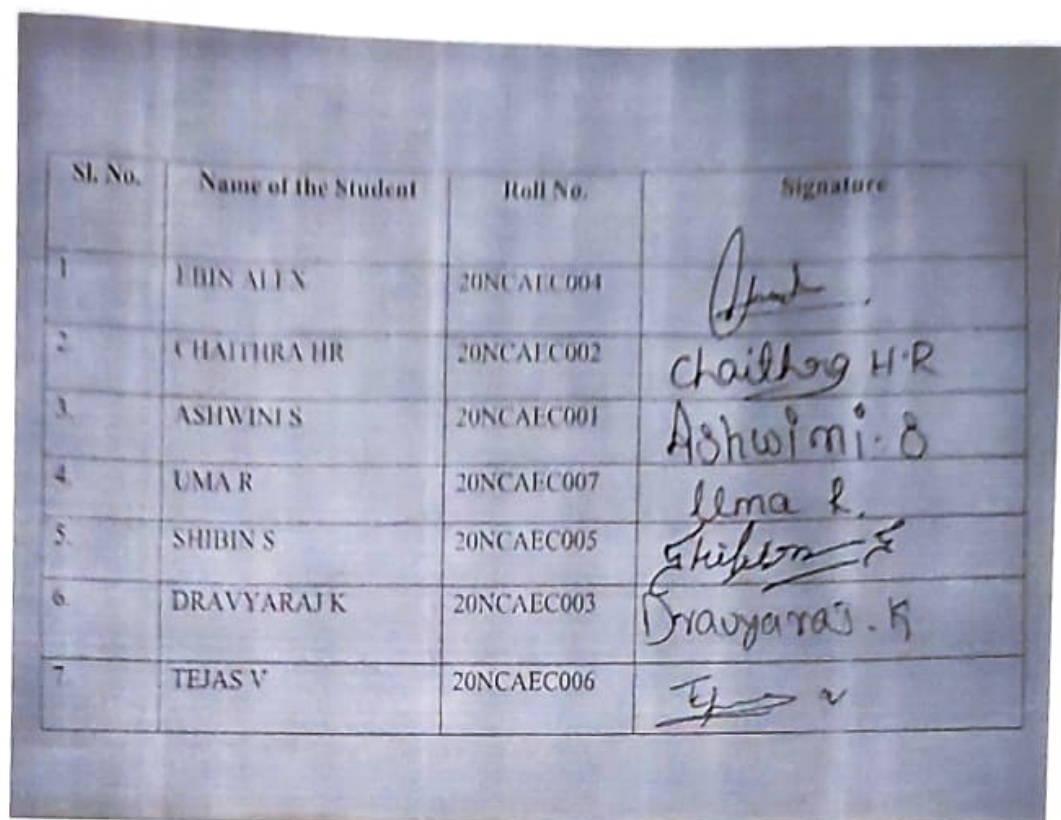 Sl. No. Name of the Student Roll No. Signature
1 EBIN ALEX 20NCAEC004
2. CHAITHRA HR 20NCAEC002 Chaithra H.R
3. ASHWINI S 20NCAEC001 Ashwini.S
4. UMA R 20NCAEC007 Uma R.
5. SHIBIN S 20NCAEC005
6. DRAVYARAJ K 20NCAEC003 Dravyaraj.K
7. TEJAS V 20NCAEC006